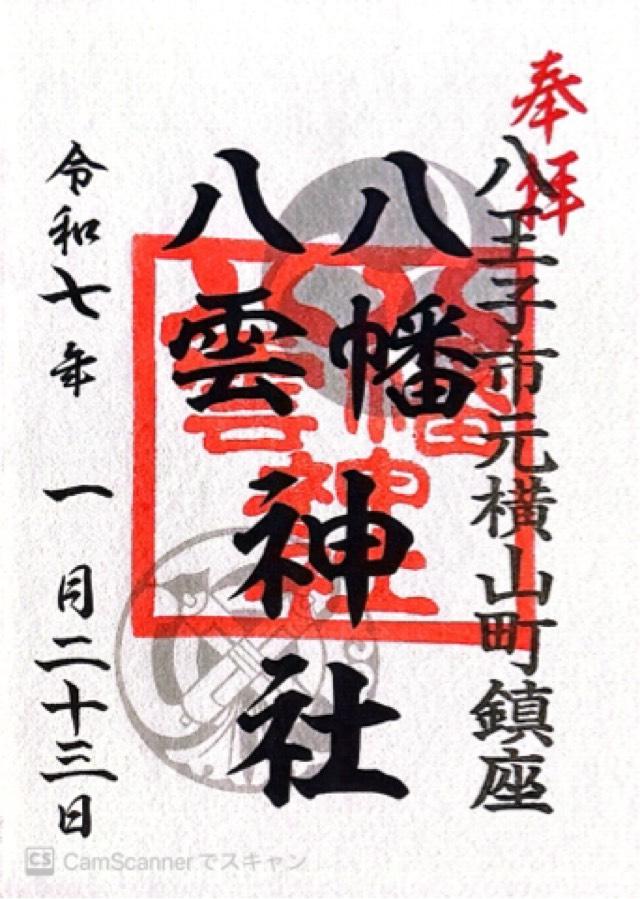 奉拝
八王子市元横山町鎮座
八幡
八雲
神社
八幡
八雲
神社
令和七年 一月二十三日
CS CamScannerでスキャン